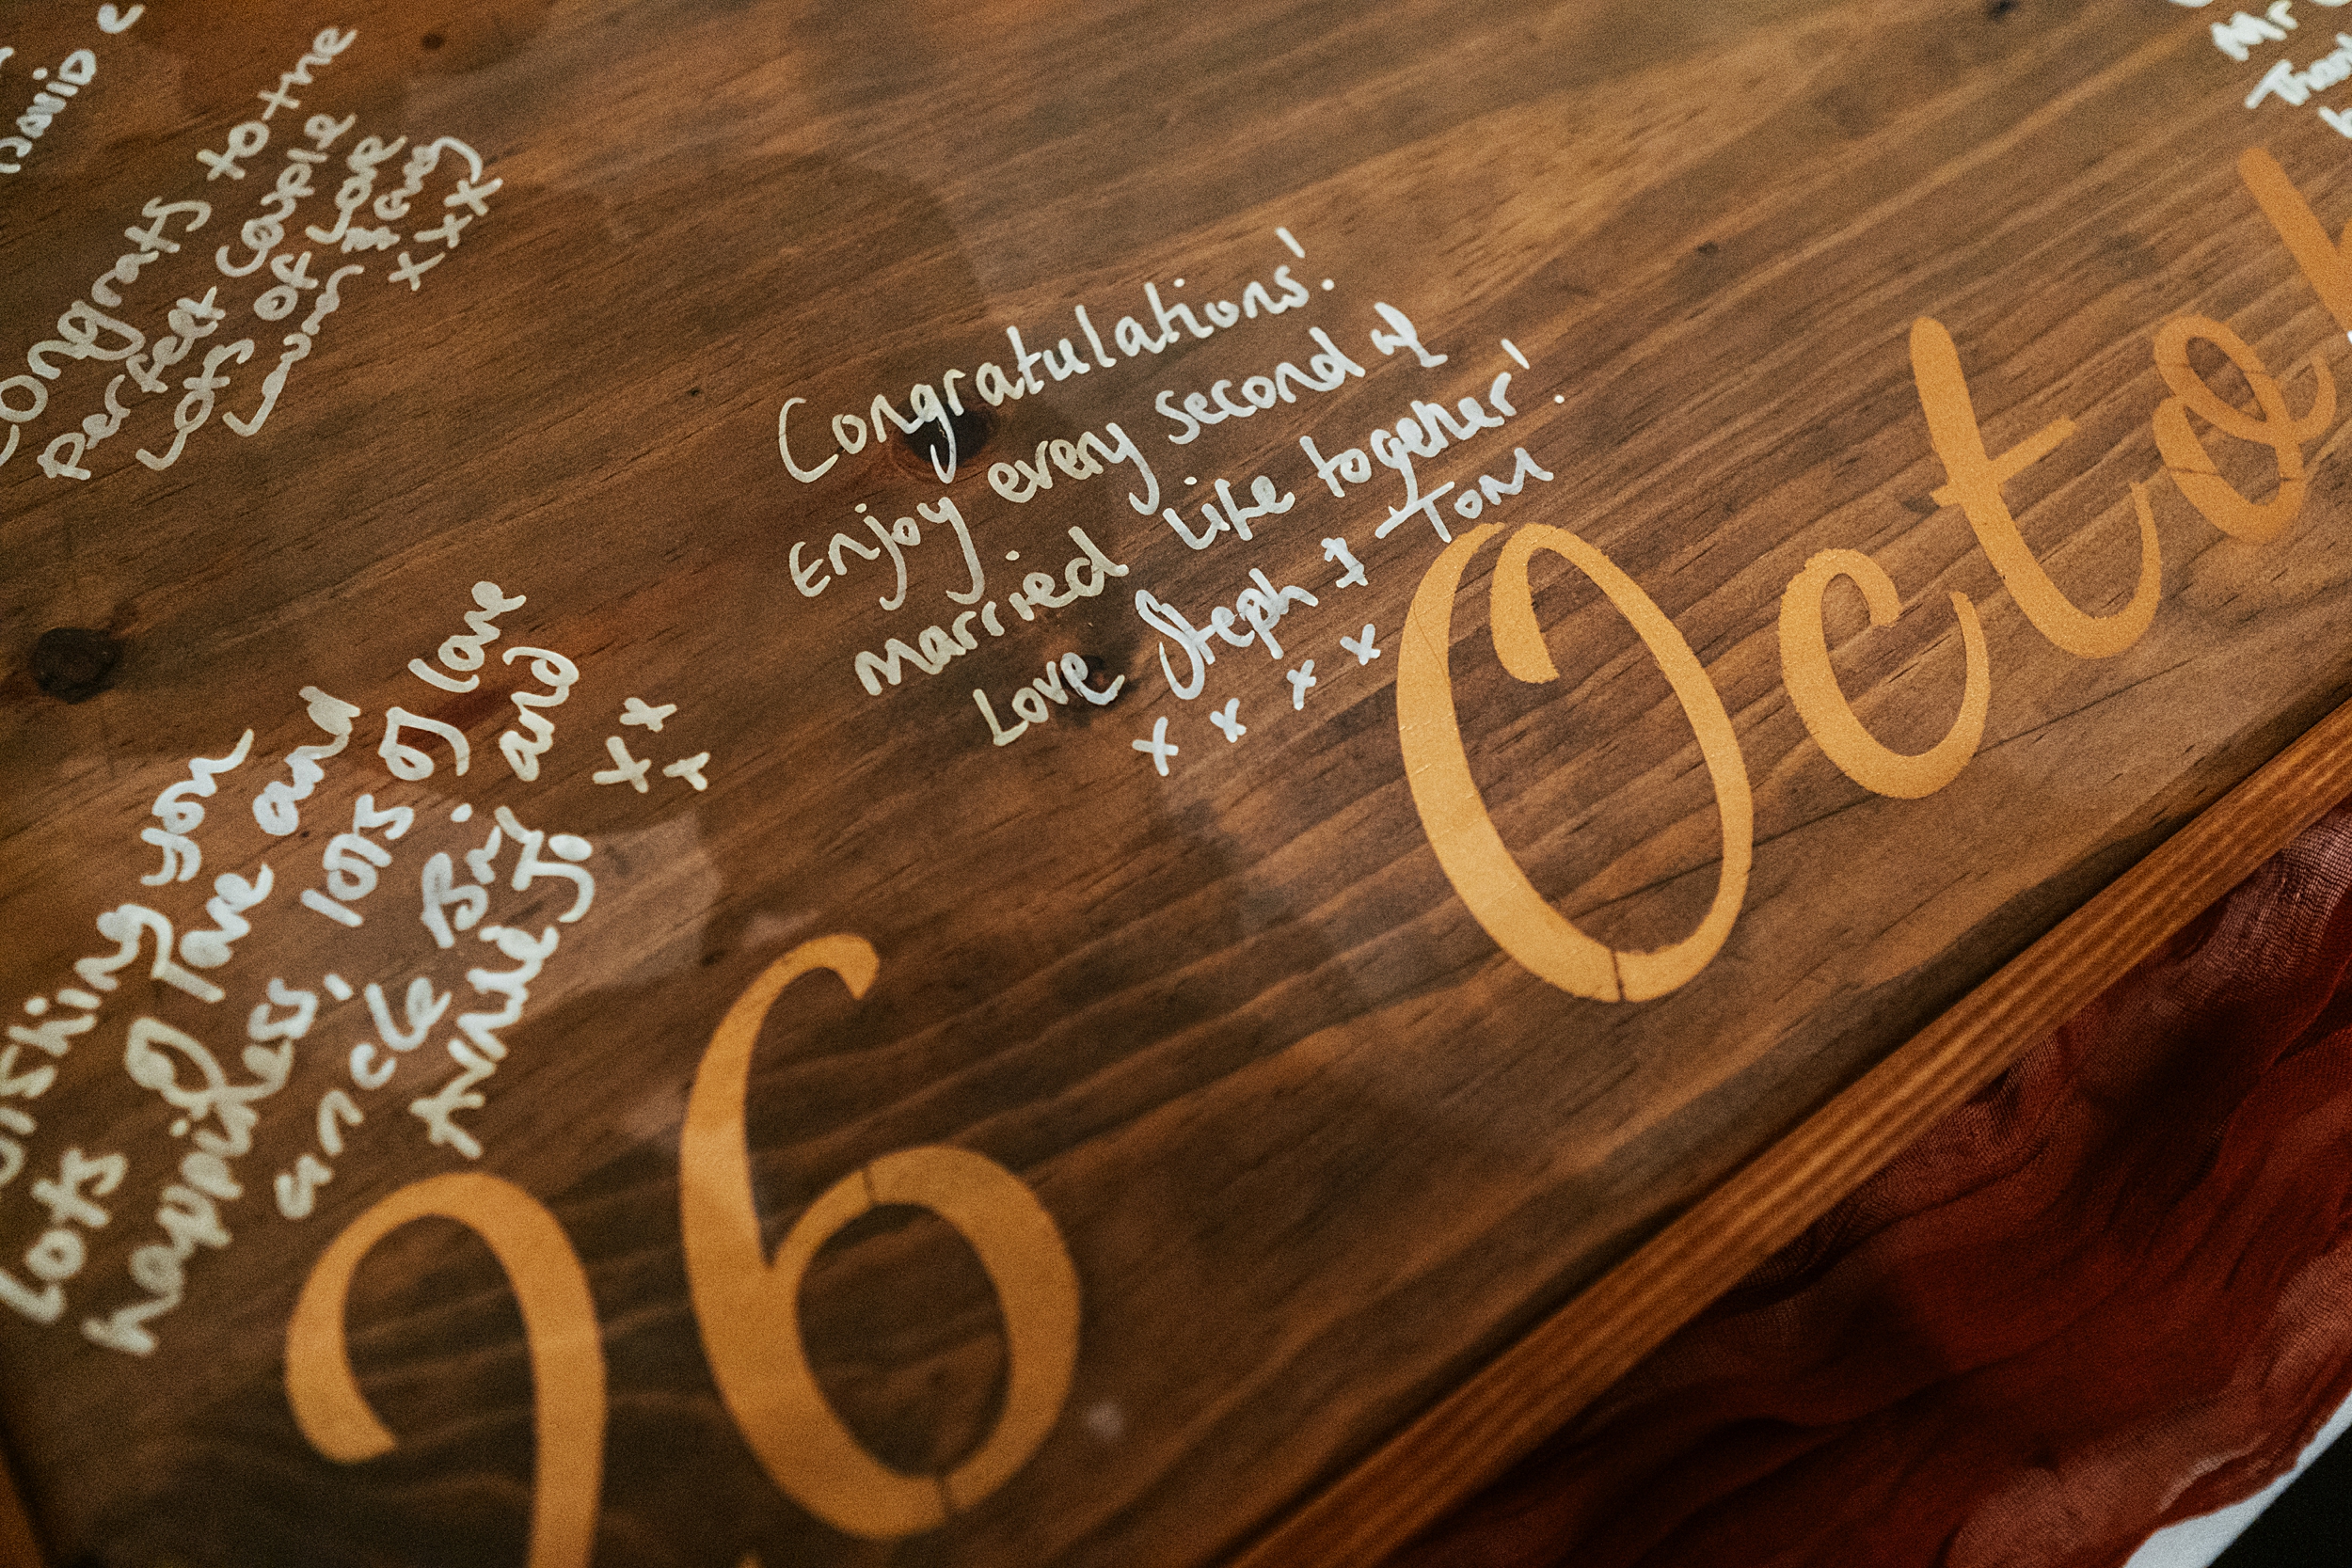 David
Congrats to the
perfect couple
Lots of love
xxx
Congratulations!
Enjoy every second of
married life together!
Love Steph + Tom
x x x x
Wishing you
Lots of love and
happiness, lots of love
uncle Bri and
Annie Jo xxx
Mr
26 Octo